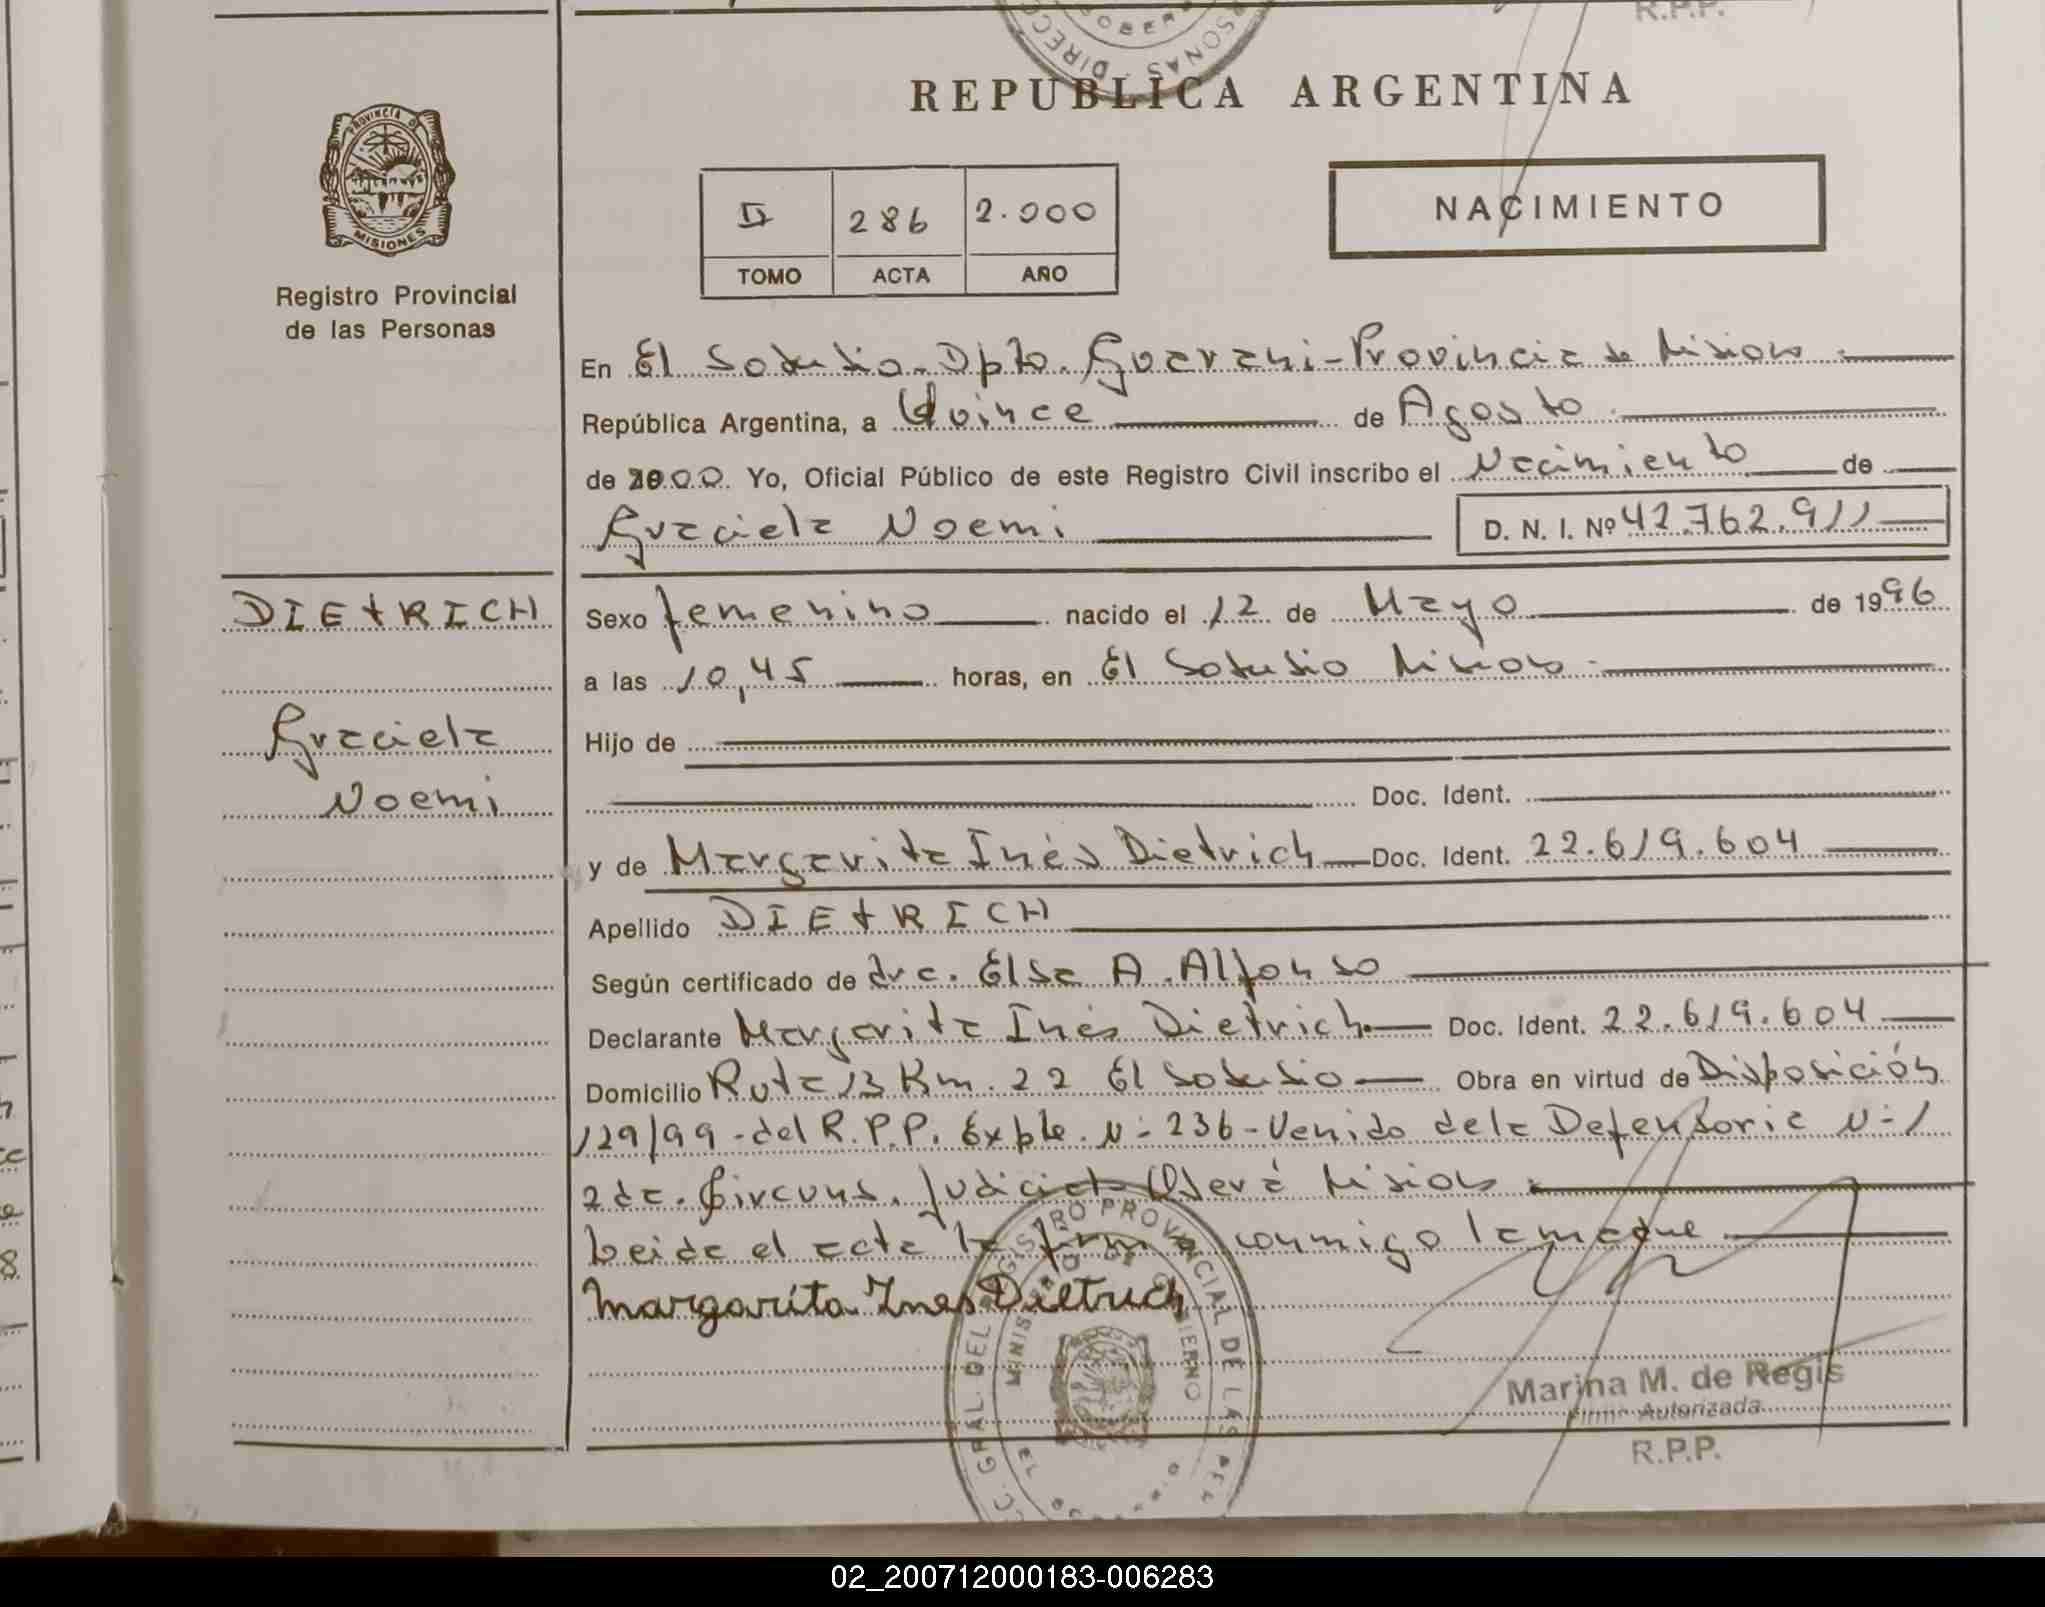 R.P.P.
REPUBLICA ARGENTINA
PROVINCIA DE
MISIONES
Registro Provincial
de las Personas
II 286 2.000
TOMO ACTA AÑO
NACIMIENTO
En El Soberbio. Dpto. Guarani - Provincia de Misiones
República Argentina, a Quince de Agosto
de 2000. Yo, Oficial Público de este Registro Civil inscribo el Nacimiento de
Graciela Noemi D. N. I. Nº 42.762.911
DIETRICH
Graciela
Noemi
Sexo femenino nacido el 12 de Mayo de 1996
a las 10,45 horas, en El Soberbio Misiones
Hijo de
Doc. Ident.
y de Margarita Inés Dietrich Doc. Ident. 22.619.604
Apellido DIETRICH
Según certificado de dra. Elsa A. Alfonso
Declarante Margarita Inés Dietrich Doc. Ident. 22.619.604
Domicilio Ruta 13 Km. 22 El Soberbio Obra en virtud de Disposición
129/99 - del R.P.P. Expte. N= 236 - Venido dela Defensoria N= 1
2da. Circuns. Judicial Oberá Misiones
Leida el acta la firma conmigo la madre
Margarita Ines Dietrich
Marina M. de Regis
Firma Autorizada
R.P.P.
02_200712000183-006283